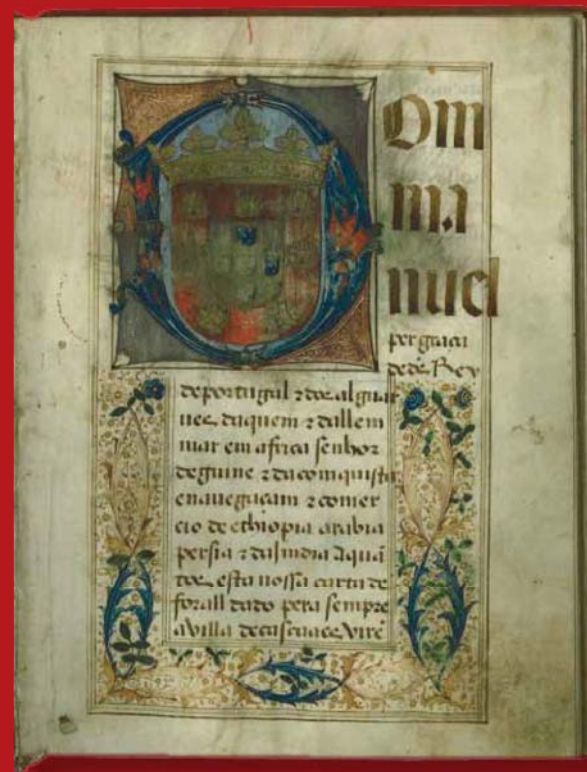 Dom
ma
nuel
per graça
de ds Rey
de portugal z dos algar
ues daquem z dallem
mar em africa senhor
de guine z da comquista
e nauegaçam z comer
cio de ethiopia arabia
persia z da india A quã
tos esta nossa carta de
forall dado pera sempre
a villa de cascaaes virẽ